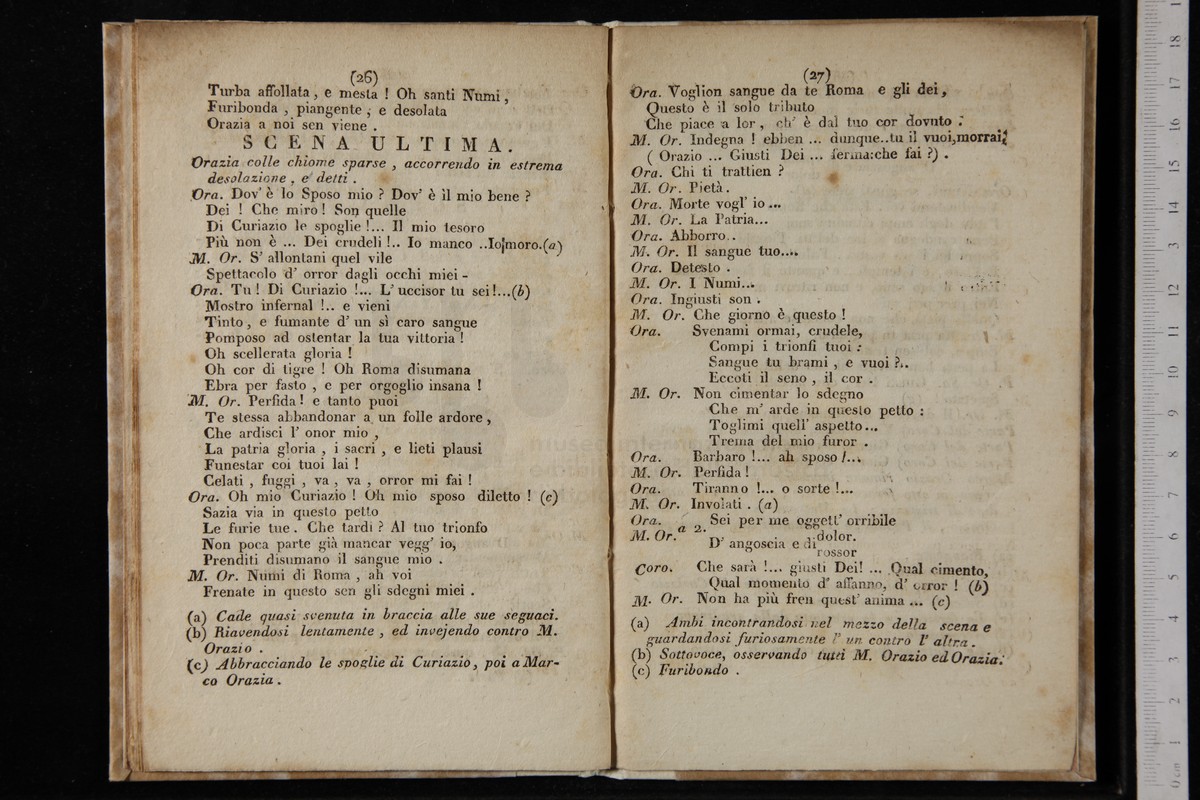 (26)
Turba affollata, e mesta ! Oh santi Numi,
Furibonda , piangente , e desolata
Orazia a noi sen viene .
SCENA ULTIMA.
Orazia colle chiome sparse , accorrendo in estrema
desolazione , e' detti .
Ora. Dov' è lo Sposo mio ? Dov' è il mio bene ?
Dei ! Che miro ! Son quelle
Di Curiazio le spoglie !... Il mio tesoro
Più non è ... Dei crudeli !.. Io manco ..Io moro.(a)
M. Or. S' allontani quel vile
Spettacolo d' orror dagli occhi miei -
Ora. Tu ! Di Curiazio !... L' uccisor tu sei!...(b)
Mostro infernal !.. e vieni
Tinto , e fumante d' un sì caro sangue
Pomposo ad ostentar la tua vittoria !
Oh scellerata gloria !
Oh cor di tigre ! Oh Roma disumana
Ebra per fasto , e per orgoglio insana !
M. Or. Perfida ! e tanto puoi
Te stessa abbandonar a un folle ardore ,
Che ardisci l' onor mio ,
La patria gloria , i sacri , e lieti plausi
Funestar coi tuoi lai !
Celati , fuggi , va , va , orror mi fai !
Ora. Oh mio Curiazio ! Oh mio sposo diletto ! (c)
Sazia via in questo petto
Le furie tue . Che tardi ? Al tuo trionfo
Non poca parte già mancar vegg' io,
Prenditi disumano il sangue mio .
M. Or. Numi di Roma , ah voi
Frenate in questo sen gli sdegni miei .
(a) Cade quasi svenuta in braccia alle sue seguaci.
(b) Riavendosi lentamente , ed invejendo contro M.
Orazio .
(c) Abbracciando le spoglie di Curiazio, poi a Mar-
co Orazia .
(27)
Ora. Voglion sangue da te Roma e gli dei ,
Questo è il solo tributo
Che piace a lor , ch' è dal tuo cor dovuto .
M. Or. Indegna ! ebben ... dunque..tu il vuoi,morrai;
( Orazio ... Giusti Dei ... ferma:che fai ?) .
Ora. Chi ti trattien ?
M. Or. Pietà .
Ora. Morte vogl' io ...
M. Or. La Patria...
Ora. Abborro..
M. Or. Il sangue tuo....
Ora. Detesto .
M. Or. I Numi...
Ora. Ingiusti son .
M. Or. Che giorno è questo !
Ora. Svenami ormai, crudele,
Compi i trionfi tuoi :
Sangue tu brami , e vuoi ?..
Eccoti il seno , il cor .
M. Or. Non cimentar lo sdegno
Che m' arde in questo petto :
Toglimi quell' aspetto...
Trema del mio furor .
Ora. Barbaro !... ah sposo !...
M. Or. Perfida !
Ora. Tiranno !... o sorte !...
M. Or. Involati . (a)
Ora. a 2. Sei per me oggett' orribile
M. Or. D' angoscia e di dolor.
rossor
Coro. Che sarà !... giusti Dei! ... Qual cimento,
Qual momento d' affanno, d' orror ! (b)
M. Or. Non ha più fren quest' anima ... (c)
(a) Ambi incontrandosi nel mezzo della scena e
guardandosi furiosamente l' un contro l' altra .
(b) Sottovoce, osservando tutti M. Orazio ed Orazia.
(c) Furibondo .
0 cm 1 2 3 4 5 6 7 8 9 10 11 12 13 14 15 16 17 18